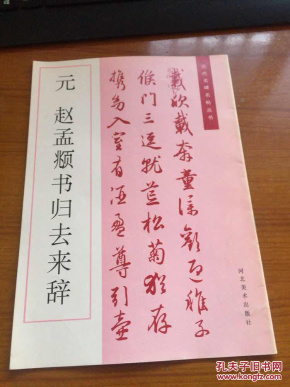 元 赵孟頫书归去来辞
载欣载奔童仆欢迎稚子
候门三迳就荒松菊犹存
携幼入室有酒盈尊引壶
河北美术出版社
孔夫子旧书网